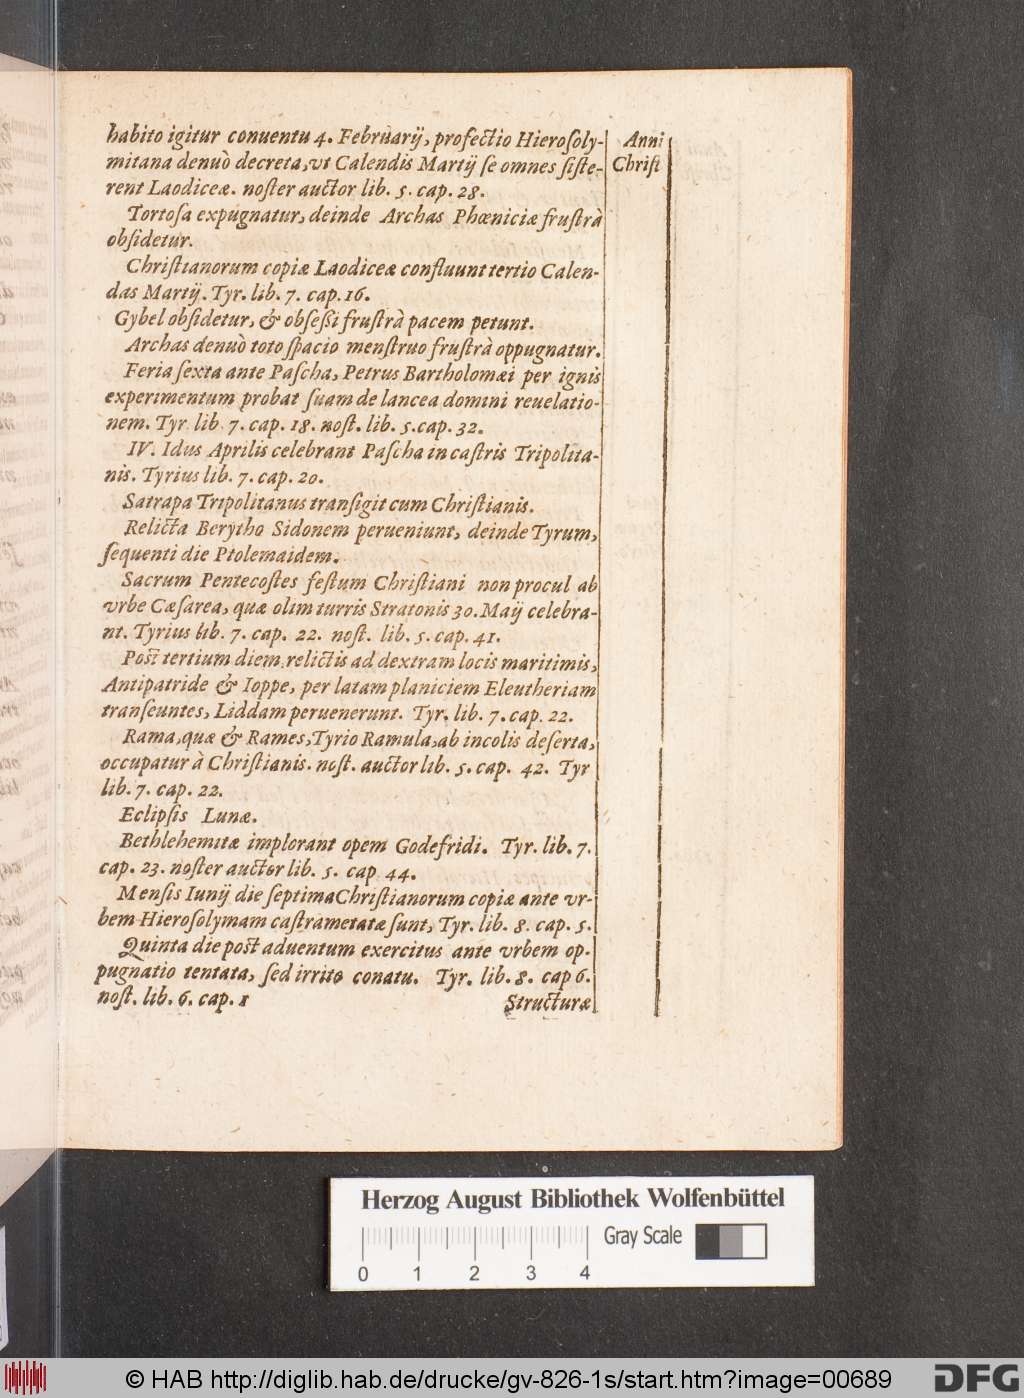 habito igitur conuentu 4. Februarij, profectio Hierosoly-
mitana denuò decreta, vt Calendis Martij se omnes siste-
rent Laodiceæ. noster auctor lib. 5. cap. 28.
Tortosa expugnatur, deinde Archas Phœniciæ frustrà
obsidetur.
Christianorum copiæ Laodiceæ confluunt tertio Calen-
das Martij. Tyr. lib. 7. cap. 16.
Gybel obsidetur, & obsessi frustrà pacem petunt.
Archas denuò toto spacio menstruo frustrà oppugnatur.
Feria sexta ante Pascha, Petrus Bartholomæi per ignis
experimentum probat suam de lancea domini reuelatio-
nem. Tyr. lib. 7. cap. 18. nost. lib. 5. cap. 32.
IV. Idus Aprilis celebrant Pascha in castris Tripolita-
nis. Tyrius lib. 7. cap. 20.
Satrapa Tripolitanus transigit cum Christianis.
Relicta Berytho Sidonem perueniunt, deinde Tyrum,
sequenti die Ptolemaidem.
Sacrum Pentecostes festum Christiani non procul ab
vrbe Cæsarea, quæ olim turris Stratonis 30. Maij celebra-
nt. Tyrius lib. 7. cap. 22. nost. lib. 5. cap. 41.
Post tertium diem, relictis ad dextram locis maritimis,
Antipatride & Ioppe, per latam planiciem Eleutheriam
transeuntes, Liddam peruenerunt. Tyr. lib. 7. cap. 22.
Rama, quæ & Rames, Tyrio Ramula, ab incolis deserta,
occupatur à Christianis. nost. auctor lib. 5. cap. 42. Tyr
lib. 7. cap. 22.
Eclipsis Lunæ.
Bethlehemitæ implorant opem Godefridi. Tyr. lib. 7.
cap. 23. noster auctor lib. 5. cap 44.
Mensis Iunij die septima Christianorum copiæ ante vr-
bem Hierosolymam castrametatæ sunt, Tyr. lib. 8. cap. 5.
Quinta die post aduentum exercitus ante vrbem op-
pugnatio tentata, sed irrito conatu. Tyr. lib. 8. cap 6.
nost. lib. 6. cap. 1
Structuræ
Anni
Christi
Herzog August Bibliothek Wolfenbüttel
0 1 2 3 4
Gray Scale
© HAB http://diglib.hab.de/drucke/gv-826-1s/start.htm?image=00689
DFG